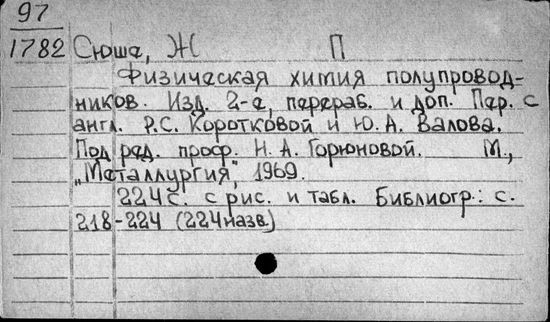 97
1782 Сюше, Ж П
Физическая химия полупровод-
ников. Изд. 2-е, перераб. и доп. Пер. с
англ. Р.С. Коротковой и Ю.А. Валова.
Под ред. проф. Н.А. Горюновой. М.,
„Металлургия", 1969.
224 с. с рис. и табл. Библиогр.: с.
218-224 (224 назв.)